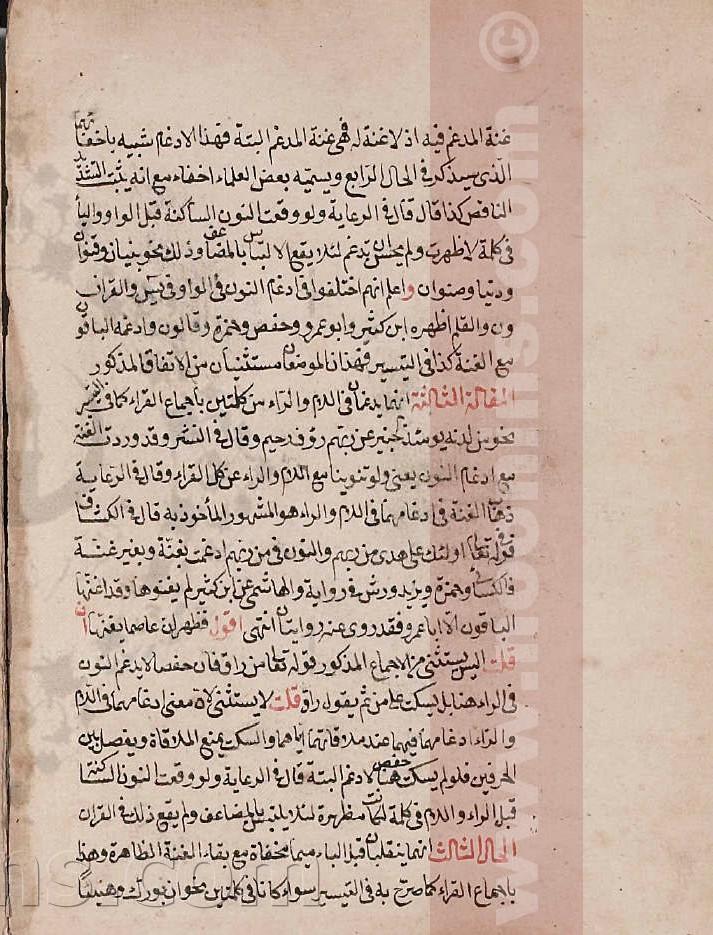 غنة المدغم فيه اذ لا غنة له فهي غنة المدغم البتة فهذا الادغام شبيه باخفائهما
الذي سيذكر في الحال الرابع ويسميه بعض العلماء اخفاء مع انه يثبت التشديد
الناقص كذا قال قال في الرعاية ولو وقعت النون الساكنة قبل الواو والياء
في كلمة لاظهرت ولم يحسن ان يدغم لئلا يقع الالتباس بالمضاعف وذلك نحو بنيان وقنوان
ودنيا وصنوان واعلم انهم اختلفوا في ادغام النون في الواو في يس والقران
ون والقلم اظهره ابن كثير وابو عمرو وحفص وحمزة وقالون وادغمه الباقون
مع الغنة كذا في التيسير فهذان الموضعان مستثنيان من الاتفاق المذكور
المقالة الثالثة انهما يدغمان في اللام والراء من كلمتين باجماع القراء كما في النشر
نحو من لدنه يومئذ لخبير عن ربهم رؤف رحيم وقال في النشر وقد وردت الغنة
مع ادغام النون يعني ولو تنوينا مع اللام والراء عن كل القراء وقال في الرعاية
ذهاب الغنة في ادغامهما في اللام والراء هو المشهور المأخوذ به قال في الكشاف
في قوله تعالى اولئك على هدى من ربهم والنون في من ربهم ادغمت بغنة وبغير غنة
فالكسائي وحمزة ويزيد وورش في رواية والهاشمي عن ابن كثير لم يغنوها وقد اغنها
الباقون الا ابا عمرو فقد روى عنه روايتان انتهى اقول فظهر ان عاصما يغنها ان
قلت اليس يستثنى من الاجماع المذكور قوله تعالى من راق فان حفصا لا يدغم النون
في الراء هنا بل يسكت على من ثم يقول راق قلت لا يستثنى لان معنى ادغامهما في اللام
والراء ادغامهما فيهما عند ملاقاتهما اياهما والسكت يمنع الملاقاة ويفصل بين
الحرفين فلو لم يسكت حفص هنا لادغم البتة قال في الرعاية ولو وقعت النون الساكنة
قبل الراء واللام في كلمة لكانت مظهرة لئلا يلتبس بالمضاعف ولم يقع ذلك في القران
الحال الثالث انهما ينقلبان قبل الباء ميما مخفاة مع بقاء الغنة الظاهرة وهذا
باجماع القراء كما صرح به في التيسير سواء كانا في كلمتين نحو ان بورك وهنيئا